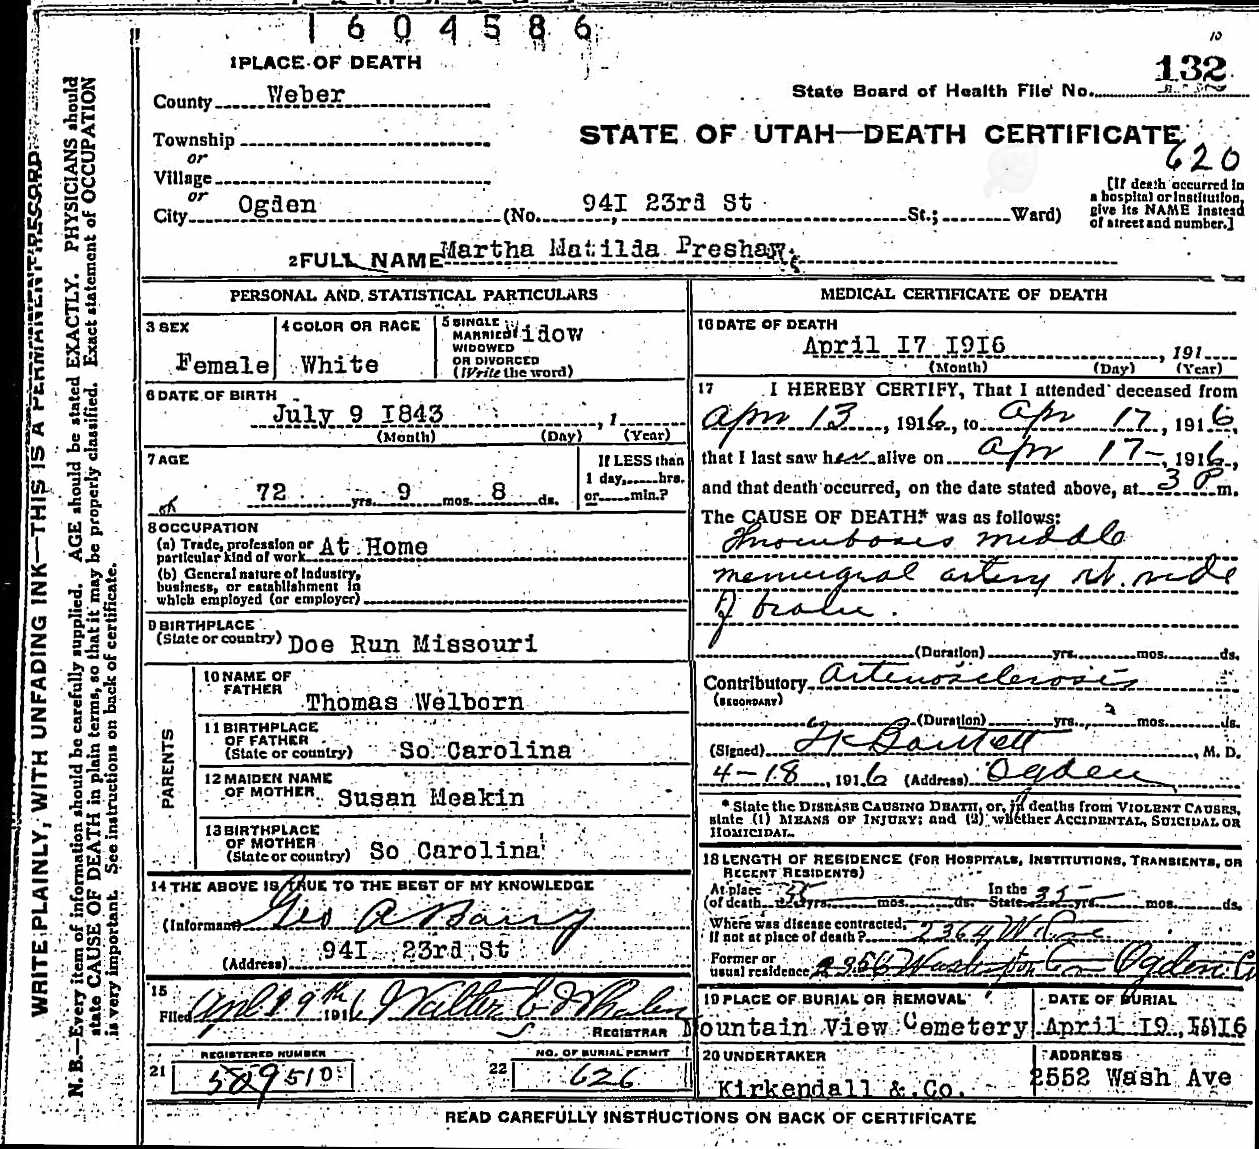 1604586
10
1 PLACE OF DEATH
132
County Weber
State Board of Health File No.
STATE OF UTAH—DEATH CERTIFICATE
Township
620
or
Village
or
City Ogden (No. 941 23rd St St.; Ward)
[If death occurred in
a hospital or institution,
give its NAME instead
of street and number.]
2 FULL NAME Martha Matilda Preshaw
PERSONAL AND STATISTICAL PARTICULARS
3 SEX
Female
4 COLOR OR RACE
White
5 SINGLE
MARRIED
WIDOWED
OR DIVORCED
(Write the word)
Widow
6 DATE OF BIRTH
July 9 1843 , 1
(Month) (Day) (Year)
7 AGE
72 yrs. 9 mos. 8 ds.
If LESS than
1 day, hrs.
or min.?
8 OCCUPATION
(a) Trade, profession or
particular kind of work At Home
(b) General nature of Industry,
business, or establishment in
which employed (or employer)
9 BIRTHPLACE
(State or country) Doe Run Missouri
PARENTS
10 NAME OF
FATHER Thomas Welborn
11 BIRTHPLACE
OF FATHER
(State or country) So Carolina
12 MAIDEN NAME
OF MOTHER Susan Meakin
13 BIRTHPLACE
OF MOTHER
(State or country) So Carolina
14 THE ABOVE IS TRUE TO THE BEST OF MY KNOWLEDGE
(Informant) Geo A Barry
(Address) 941 23rd St
15
Filed April 19th 1916 Walter
REGISTRAR
REGISTERED NUMBER
21 509 510
NO. OF BURIAL PERMIT
22 626
MEDICAL CERTIFICATE OF DEATH
16 DATE OF DEATH
April 17 1916 , 191
(Month) (Day) (Year)
17 I HEREBY CERTIFY, That I attended deceased from
Apr 13, 1916, to Apr 17, 1916,
that I last saw her alive on Apr 17-, 1916,
and that death occurred, on the date stated above, at 3 P m.
The CAUSE OF DEATH* was as follows:
Thrombosis middle
meningeal artery rt. side
of brain.
(Duration) yrs. mos. ds.
Contributory Arteriosclerosis
(SECONDARY)
(Duration) yrs. mos. ds.
(Signed) Bartlett, M. D.
4-18, 1916 (Address) Ogden
* State the DISEASE CAUSING DEATH, or, in deaths from VIOLENT CAUSES,
state (1) MEANS OF INJURY; and (2) whether ACCIDENTAL, SUICIDAL OR
HOMICIDAL.
18 LENGTH OF RESIDENCE (FOR HOSPITALS, INSTITUTIONS, TRANSIENTS, OR
RECENT RESIDENTS)
At place
of death yrs. mos. ds. In the
State 35 yrs. mos. ds.
Where was disease contracted,
if not at place of death? 2364
Former or
usual residence Washington Ogden
19 PLACE OF BURIAL OR REMOVAL
Mountain View Cemetery
DATE OF BURIAL
April 19, 1916
20 UNDERTAKER
Kirkendall & Co.
ADDRESS
2552 Wash Ave
READ CAREFULLY INSTRUCTIONS ON BACK OF CERTIFICATE
WRITE PLAINLY, WITH UNFADING INK—THIS IS A PERMANENT RECORD
N. B.—Every item of information should be carefully supplied. AGE should be stated EXACTLY. PHYSICIANS should
state CAUSE OF DEATH in plain terms, so that it may be properly classified. Exact statement of OCCUPATION
is very important. See instructions on back of certificate.